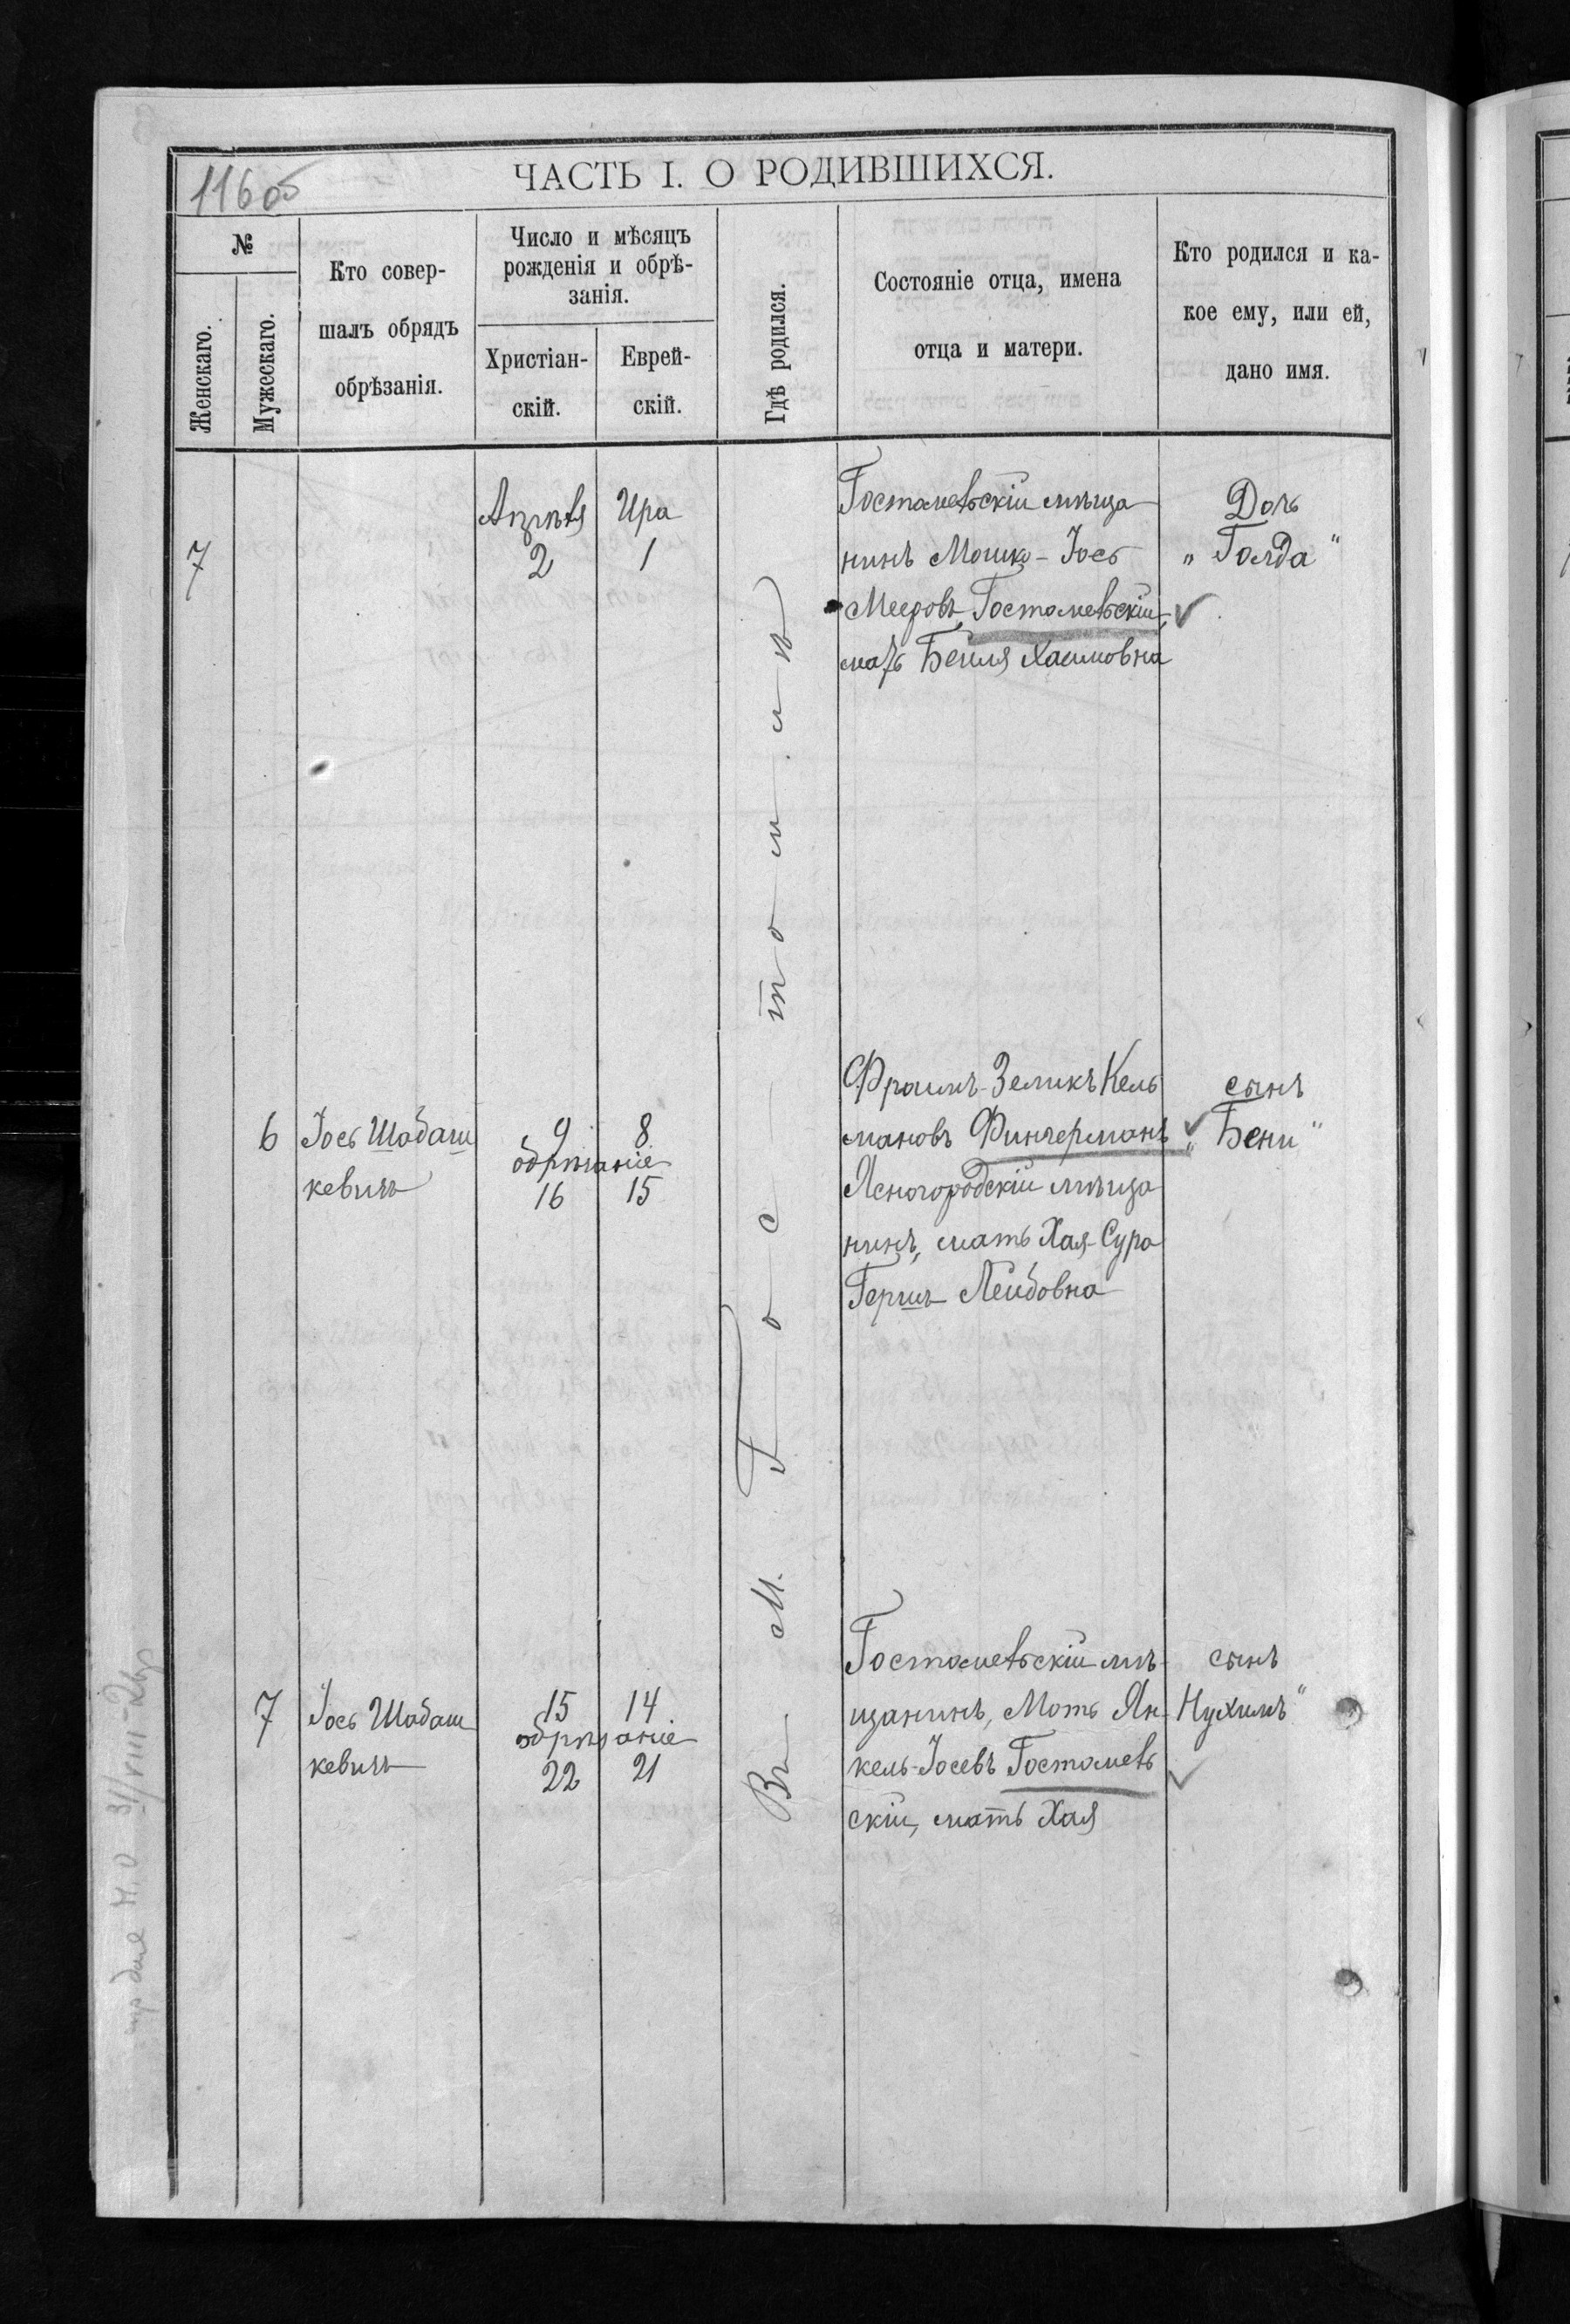 116об
ЧАСТЬ I. О РОДИВШИХСЯ.
№
Женскаго.
Мужескаго.
Кто совер-
шалъ обрядъ
обрѣзанія.
Число и мѣсяцъ
рожденія и обрѣ-
занія.
Христіан-
скій.
Еврей-
скій.
Гдѣ родился.
Состояніе отца, имена
отца и матери.
Кто родился и ка-
кое ему, или ей,
дано имя.
Въ М. Гостомлѣ
7
Апрѣля
2
Ира
1
Гостомельскій мѣща
нинъ Мошко-Іось
Мееровъ Гостомельскій,
мать Бейля Хаимовна
Дочь
„Голда"
6
Іось Шабаш
кевичъ
9 8
обрѣзаніе
16 15
Фроимъ-Зеликъ Кель
мановъ Фингерманъ
Ясногородскій мѣща
нинъ, мать Хая-Сура
Гершъ Лейбовна
сынъ
„Бени"
7
Іось Шабаш
кевичъ
15 14
обрѣзаніе
22 21
Гостомельскій мѣ-
щанинъ, Моть Ян-
кель-Іосевъ Гостомель
скій, мать Хая
сынъ
Нухимъ"